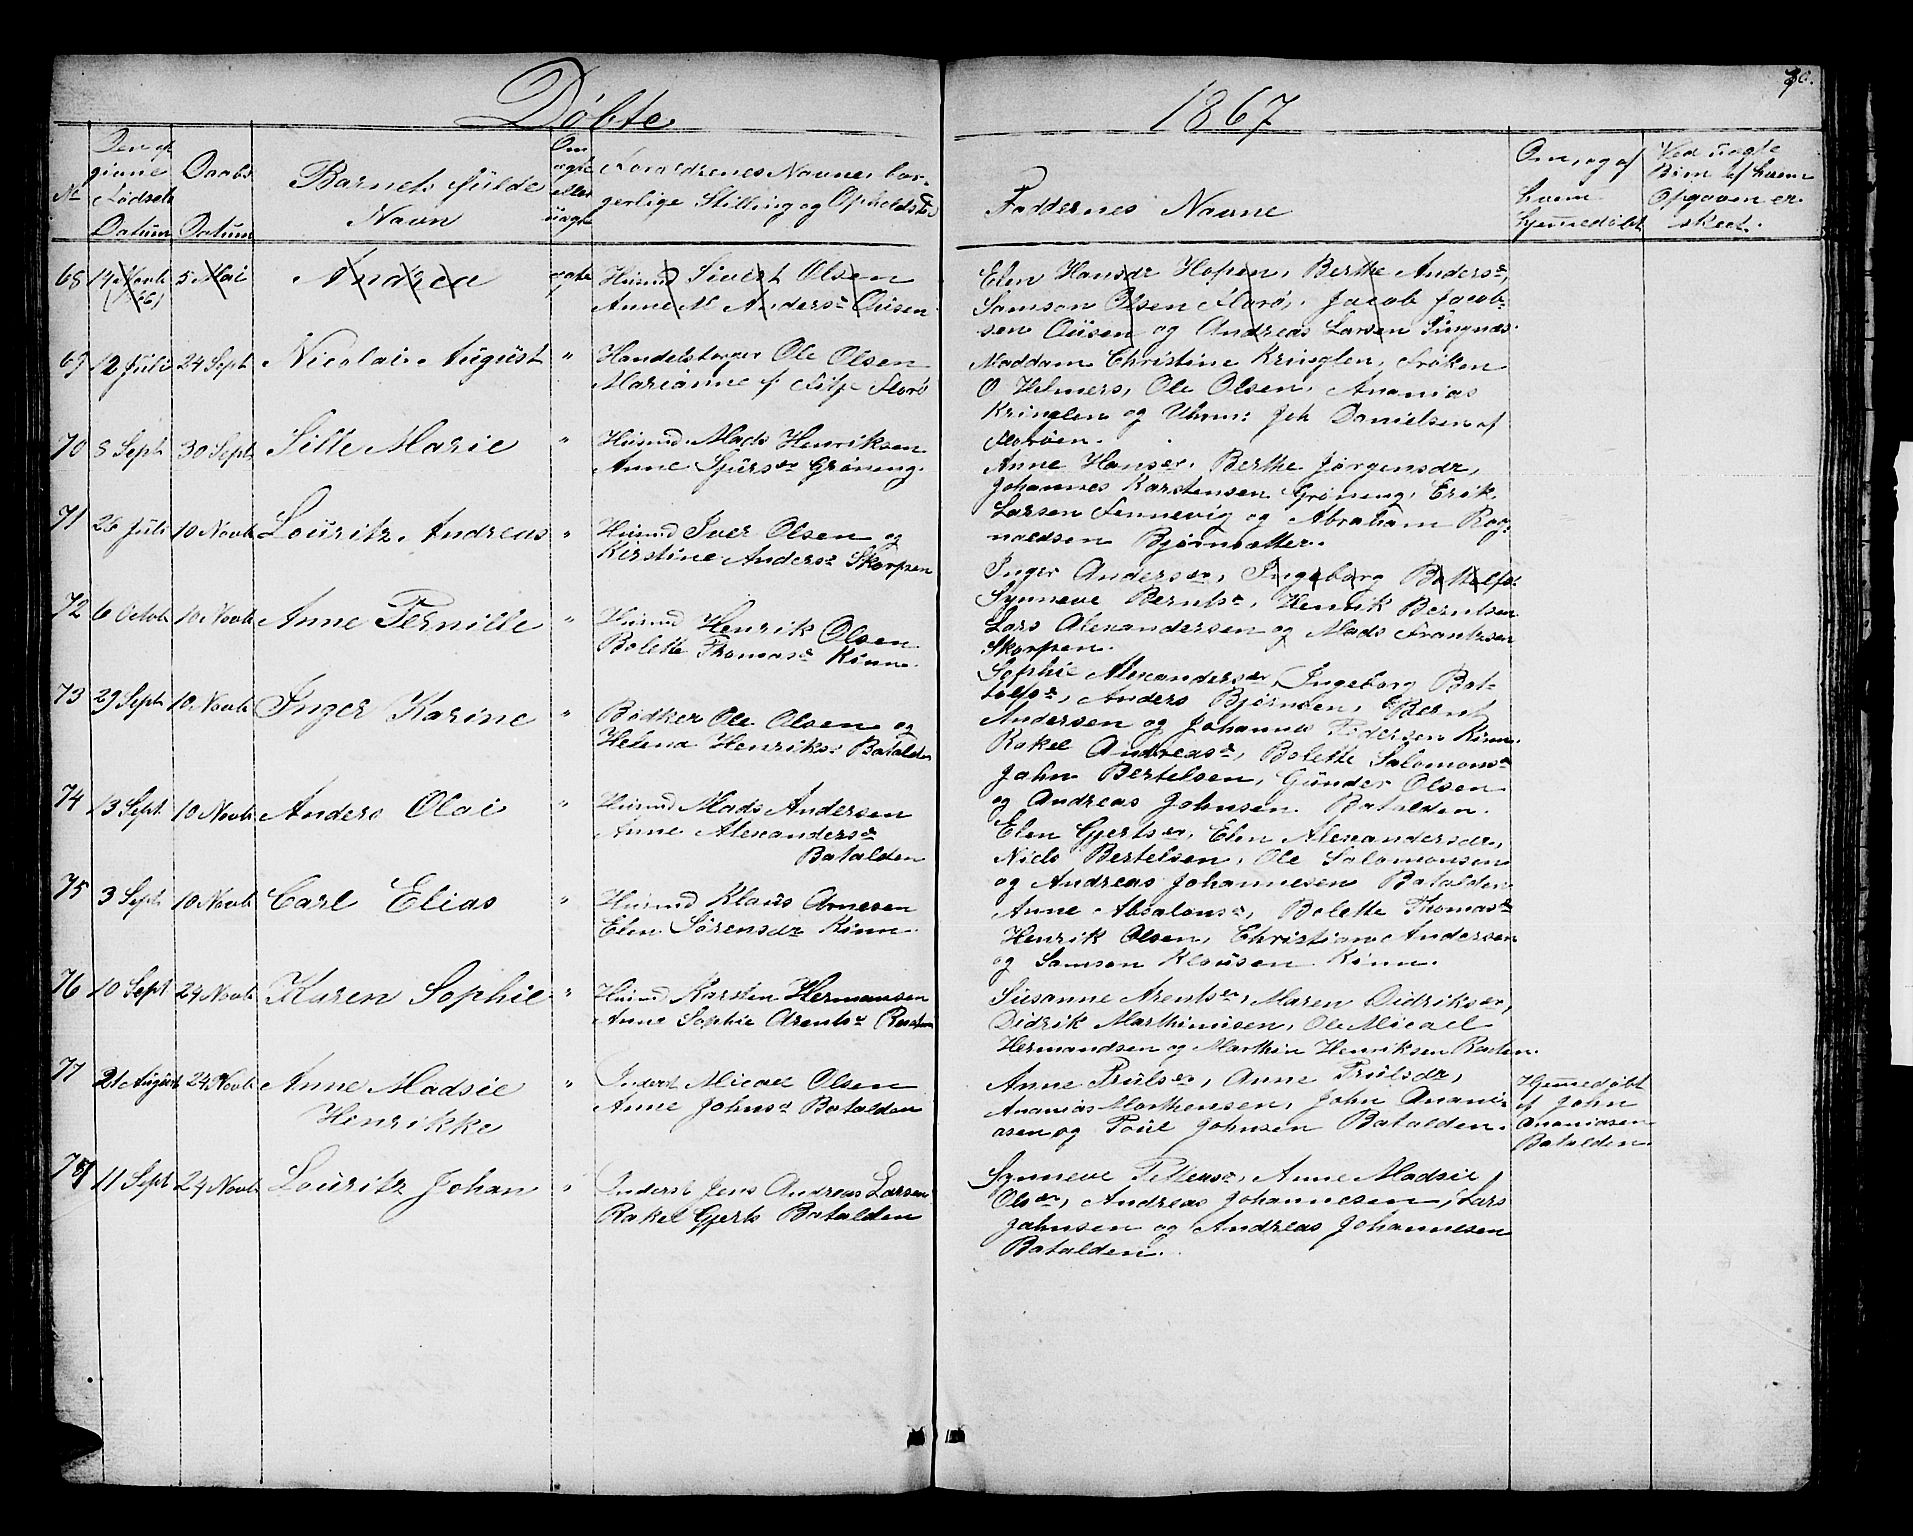 Døbte
1867
No
Den opgivne Fødsels Datum
Daabs Datum
Barnets fulde Navn
Om ægte eller uægte
Forældrenes Navne, borgerlige Stilling og Opholdsted
Faddernes Navne
Om, og af hvem hjemmedøbt
Ved uægte Børn af hvem Opgaven er skeet.
68 14 Novb (1866) 5 Mai Andrea ægte Husmd Sivert Olsen
Anne M Andersdr Ousen
Elen Hansdr Hopen, Berthe Andersdr,
Samson Olsen Florø, Jacob Jacob-
sen Ousen og Andreas Larsen
69 12 Juli 24 Sept Nicolai August " Ole Olsen
Marianne f. Florø
Maddam Christine Kringlen, Frøken
O. Helmers, Ole Olsen, Ananias
Kringlen og Joh Danielsen af
Florøen.
70 8 Sept 30 Sept Sille Marie " Husmd Mads Henriksen
Anne Grøneng.
Anne Hansdr, Berthe Jørgensdr,
Johannes Karstensen Grøneng, Erik
Larsen Fennevig og Abraham Rog-
naldsen Bjørnsetter.
71 26 Juli 10 Novb Louritz Andreas " Husmd Iver Olsen og
Kirstine Andersdr Skorpen
Inger Andersdr, Ingeborg
Synneve Berntsdr, Henrik Berntsen
Lars Alexandersen og Mads Frantzsen
Skorpen.
72 6 Octob 10 Novb Anne Pernille " Husmd Henrik Olsen
Bolette Thomasdr Kinn.
Sophie Alexandersdr, Ingeborg Bot-
tolfsdr, Anders Bjørnsen, Bernt
Andersen og Johannes Pedersen Kinn.
73 29 Sept 10 Novb Inger Karine " Bødker Ole Olsen og
Helena Henriksdr Batalden
Rakel Andreasdr, Bolette Salomonsdr
John Bertelsen, Gunder Olsen
og Andreas Johnsen Batalden.
74 13 Sept 10 Novb Anders Olai " Husmd Mads Andersen
Anne Alexandersdr
Batalden
Elen Gjertsdr, Elen Alexandersdr,
Niels Bertelsen, Ole Salomonsen
og Andreas Johannesen Batalden
75 3 Sept 10 Novb Carl Elias " Husmd Klaus Arnesen
Elen Sørensdr Kinn.
Anne Absalonsdr, Bolette Thomasdr
Henrik Olsen, Christian Andersen
og Samson Klausen Kinn.
76 10 Sept 24 Novb Karen Sophie " Husmd Karsten Hermansen
Anne Sophie Arentsdr
Susanne Arentsdr, Maren Didriksdr,
Didrik Marthinusen, Ole Micael
Hermandsen og Marthin Henriksen
77 21 August 24 Novb Anne Madsie
Henrikke
" Inderst Micael Olsen
Anne Johnsdr Batalden
Anne Trulsdr, Anne Trulsdr,
Ananias Marthensen, John Anani-
asen og Poul Johnsen Batalden.
Hjemmedøbt
af John
Ananiasen
Batalden
78 11 Sept 24 Novb Louritz Johan " Inderst Jens Andreas Larsen
Rakel Gjerts Batalden
Synneve Anne Madsie
Olsdr, Andreas Johannesen, Lars
Johnsen og Andreas Johannesen
Batalden.